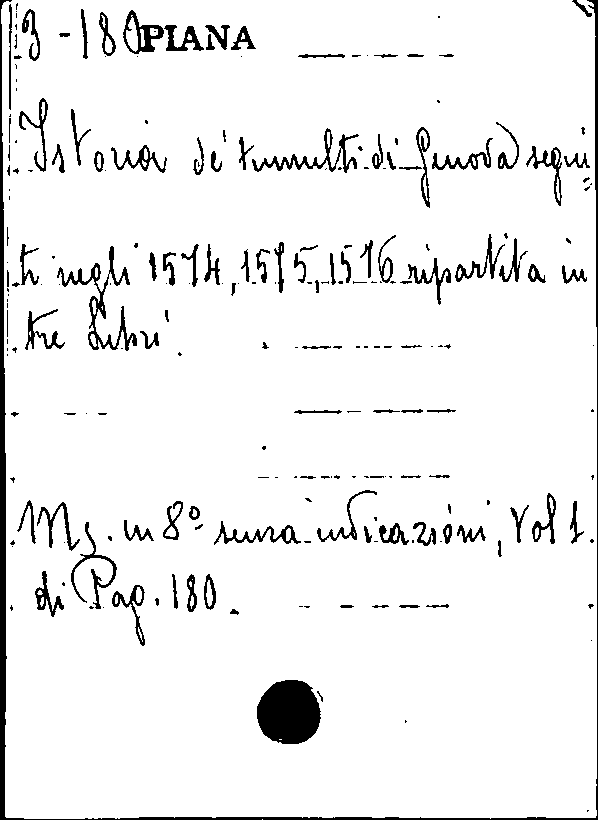 3-180 PIANA
Istoria de' tumulti di Genova segui=
ti negli 1574, 1575, 1576 ripartita in
tre Libri.
Ms. in 8º senza indicazioni, Vol 1.
di Pag. 180.